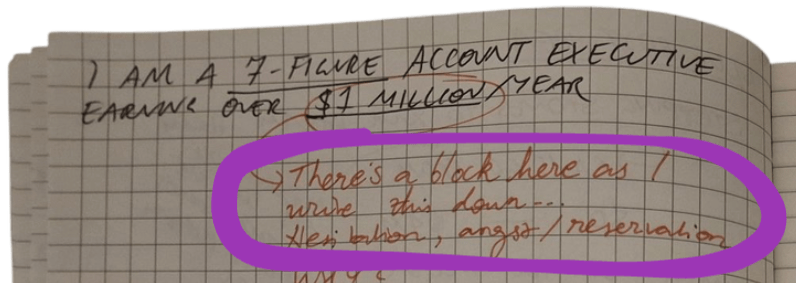 I AM A 7-FIGURE ACCOUNT EXECUTIVE
EARNING OVER $1 MILLION/YEAR
There's a block here as I
write this down...
Hesitation, angst/reservation
WHY?